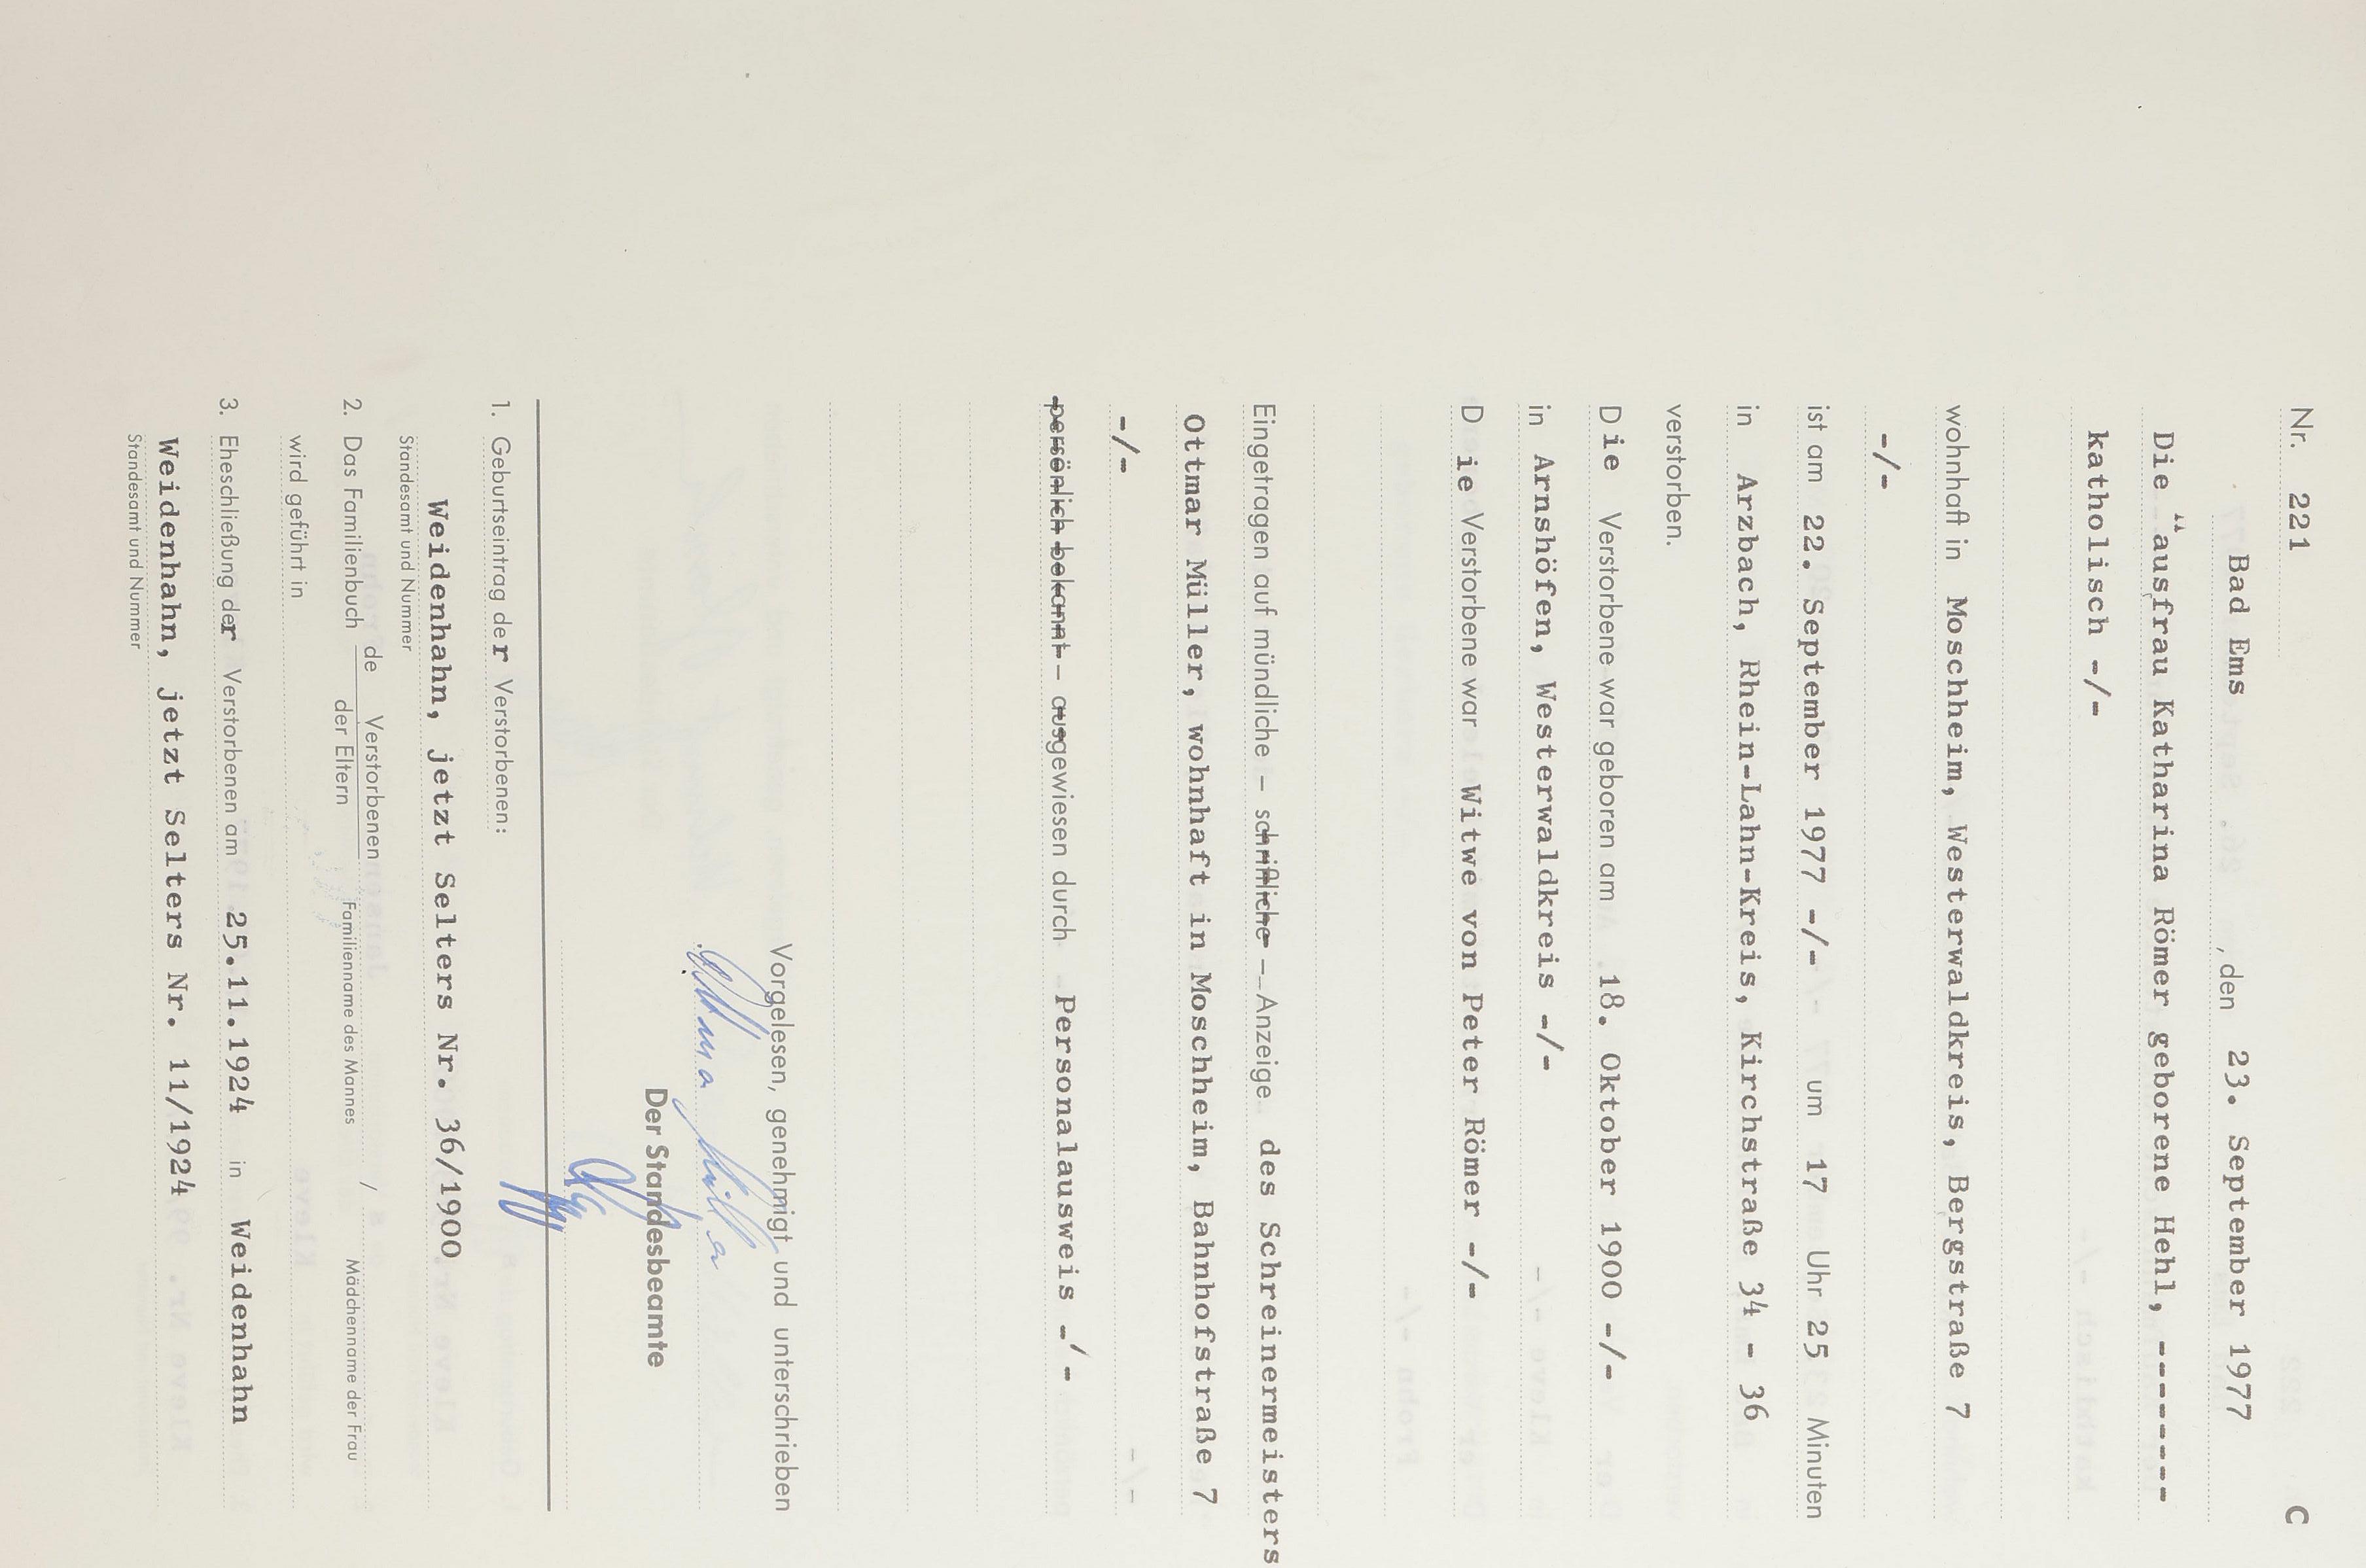 Nr. 221 C
Bad Ems, den 23. September 1977
Die Hausfrau Katharina Römer geborene Hehl, --------
katholisch -/-
wohnhaft in Moschheim, Westerwaldkreis, Bergstraße 7
-/-
ist am 22. September 1977 -/- um 17 Uhr 25 Minuten
in Arzbach, Rhein-Lahn-Kreis, Kirchstraße 34 - 36
verstorben.
Die Verstorbene war geboren am 18. Oktober 1900 -/-
in Arnshöfen, Westerwaldkreis -/-
Die Verstorbene war Witwe von Peter Römer -/-
Eingetragen auf mündliche – schriftliche – Anzeige des Schreinermeisters
Ottmar Müller, wohnhaft in Moschheim, Bahnhofstraße 7
-/-
persönlich bekannt – ausgewiesen durch Personalausweis -/-
Vorgelesen, genehmigt und unterschrieben
Ottmar Müller
Der Standesbeamte
1. Geburtseintrag der Verstorbenen:
Weidenhahn, jetzt Selters Nr. 36/1900
Standesamt und Nummer
2. Das Familienbuch de Verstorbenen / der Eltern
Familienname des Mannes Mädchenname der Frau
wird geführt in
3. Eheschließung der Verstorbenen am 25.11.1924 in Weidenhahn
Weidenhahn, jetzt Selters Nr. 11/1924
Standesamt und Nummer